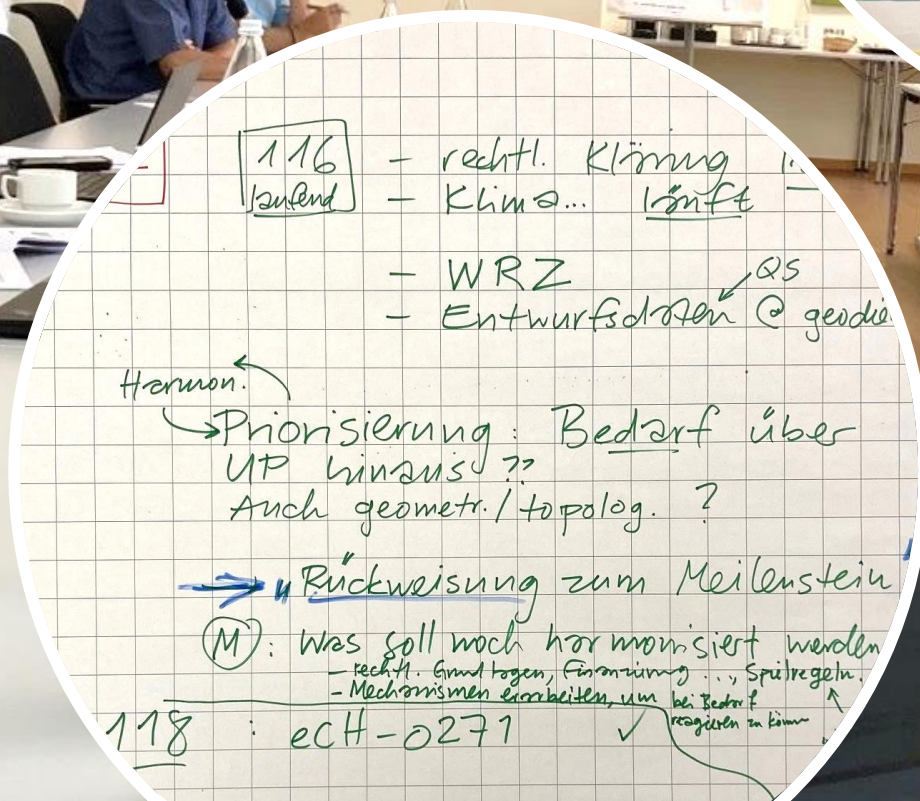 116
laufend
- rechtl. Klärung
- Klima... läuft
- WRZ
QS
- Entwurfsdaten @ geodie
Harmon.
Priorisierung : Bedarf über
UP hinaus ??
Auch geometr. / topolog. ?
"Rückweisung" zum Meilenstein
M : Was soll noch harmonisiert werden
- rechtl. Grundlagen, Finanzierung ..., Spielregeln.
- Mechanismen einarbeiten, um bei Bedarf
reagieren zu können
118 : eCH-0271 ✓